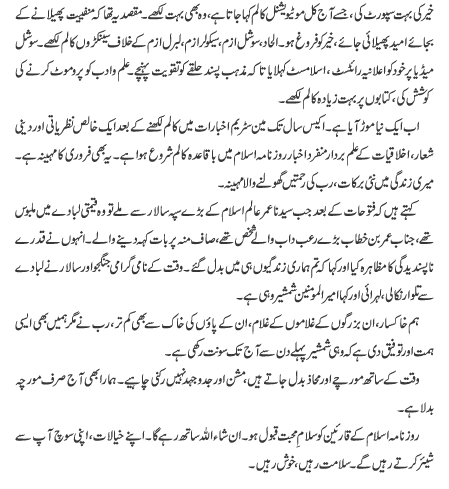 خیر کی بہت سپورٹ کی، جسے آج کل موٹیویشنل کالم کہا جاتا ہے، وہ بھی بہت لکھے۔ مقصد یہ تھا کہ منفیت پھیلانے کے
بجائے امید پھیلائی جائے، خیر کو فروغ ہو۔ الحاد، سوشل ازم، سیکولرازم، لبرل ازم کے خلاف سینکڑوں کالم لکھے۔ سوشل
میڈیا پر خود کو اعلانیہ رائٹسٹ، اسلامسٹ کہلایا تاکہ مذہب پسند حلقے کو تقویت پہنچے۔ علم و ادب کو پروموٹ کرنے کی
کوشش کی، کتابوں پر بہت زیادہ کالم لکھے۔
اب ایک نیا موڑ آیا ہے۔ اکیس سال تک مین سٹریم اخبارات میں کالم لکھنے کے بعد ایک خالص نظریاتی اور دینی
شعار، اخلاقیات کے علم بردار منفرد اخبار روزنامہ اسلام میں باقاعدہ کالم شروع ہوا ہے۔ یہ بھی فروری کا مہینہ ہے۔
میری زندگی میں نئی برکات، رب کی رحمتیں گھولنے والا مہینہ۔
کہتے ہیں کہ فتوحات کے بعد جب سیدنا عمر عالم اسلام کے بڑے سپہ سالار سے ملے تو وہ قیمتی لبادے میں ملبوس
تھے، جناب عمر بن خطاب بڑے رعب داب والے شخص تھے، صاف منہ پر بات کہہ دینے والے۔ انہوں نے قدرے
ناپسندیدگی کا مظاہرہ کیا اور کہا کہ تم ہماری زندگیوں ہی میں بدل گئے۔ وقت کے نامی گرامی جنگجو اور سالار نے لبادے
سے تلوار نکالی، لہرائی اور کہا امیر المومنین شمشیر وہی ہے۔
ہم خاکسار، ان بزرگوں کے غلاموں کے غلام، ان کے پاؤں کی خاک سے بھی کم تر، رب نے مگر ہمیں بھی ایسی
ہمت اور توفیق دی ہے کہ وہی شمشیر پہلے دن سے آج تک سونت رکھی ہے۔
وقت کے ساتھ مورچے اور محاذ بدل جاتے ہیں، مشن اور جدوجہد نہیں رکنی چاہیے۔ ہمارا بھی آج صرف مورچہ
بدلا ہے۔
روزنامہ اسلام کے قارئین کو سلام محبت قبول ہو۔ ان شاء اللہ ساتھ رہے گا۔ اپنے خیالات، اپنی سوچ آپ سے
شیئر کرتے رہیں گے۔ سلامت رہیں، خوش رہیں۔